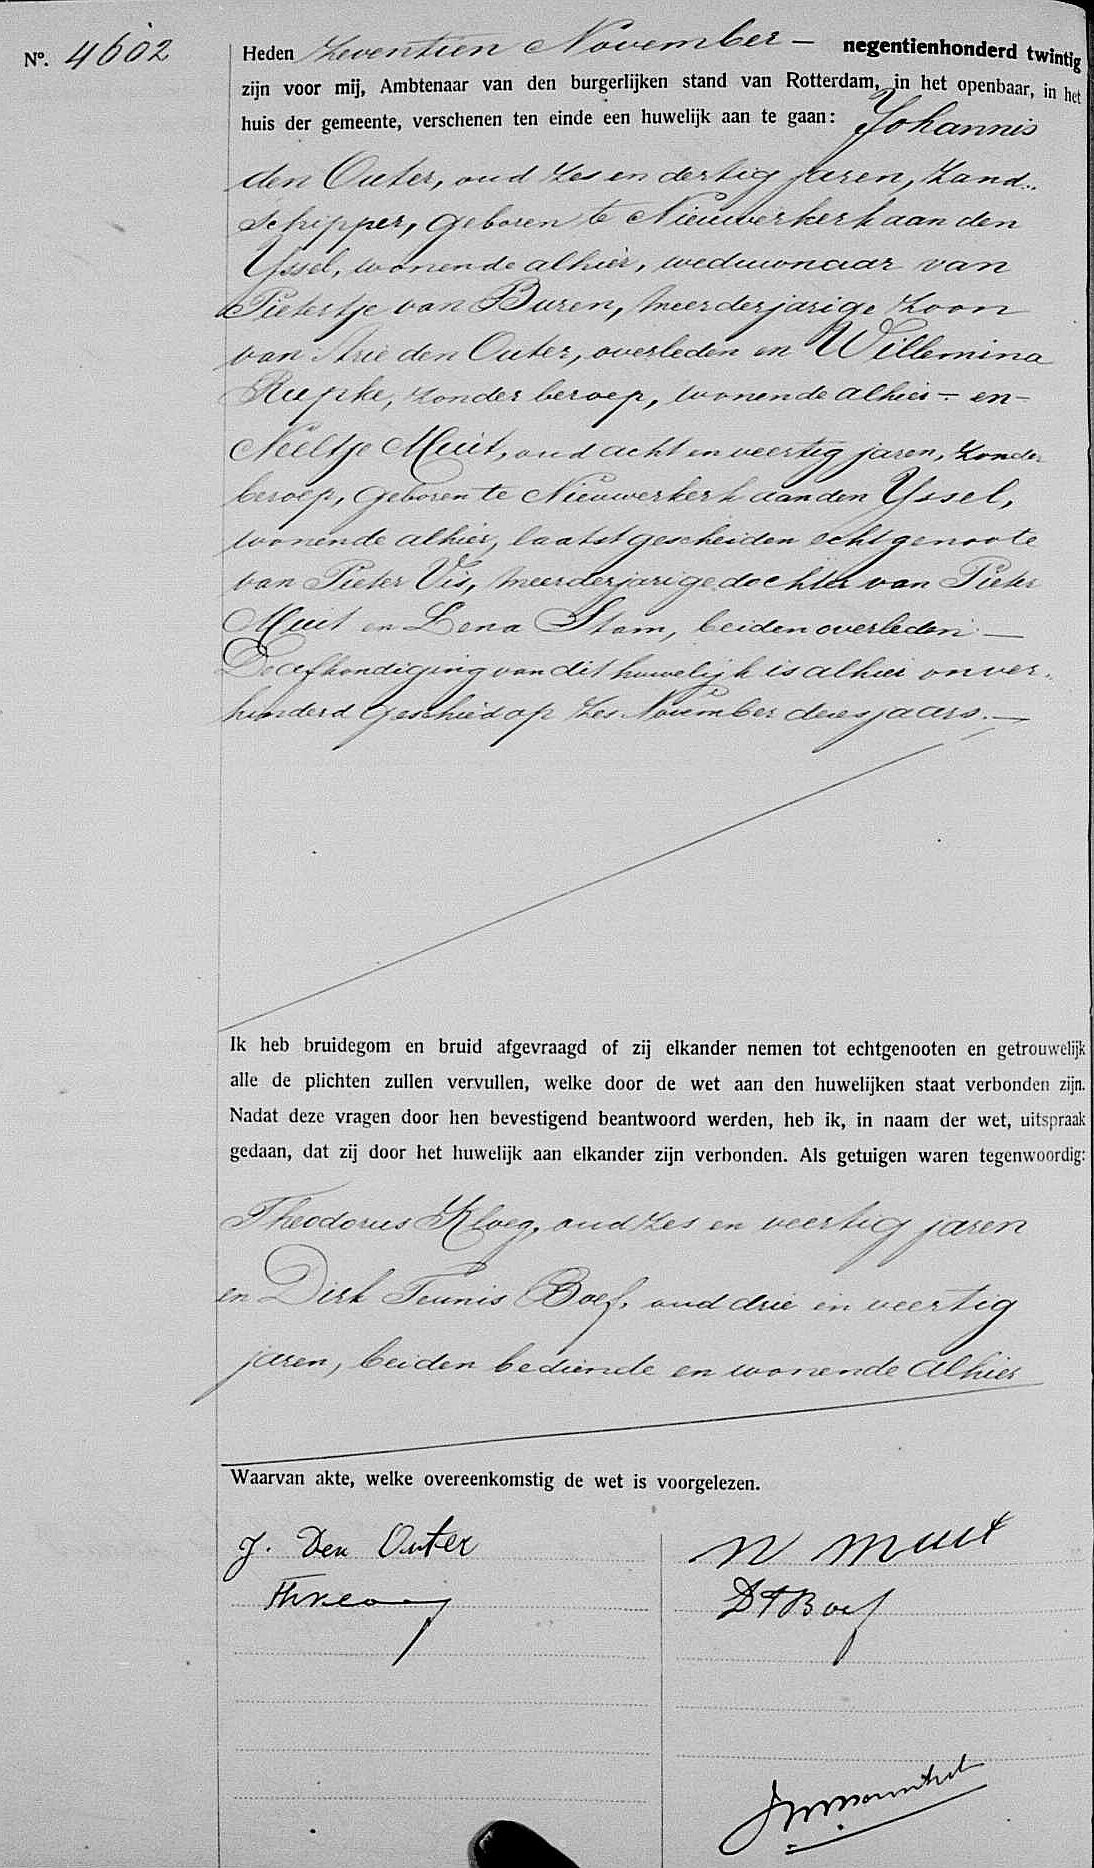 No. 4602
Heden Zeventien November – negentienhonderd twintig
zijn voor mij, Ambtenaar van den burgerlijken stand van Rotterdam, in het openbaar, in het
huis der gemeente, verschenen ten einde een huwelijk aan te gaan: Johannis
den Outer, oud zes en dertig jaren, zand-
schipper, geboren te Nieuwerkerk aan den
Yssel, wonende alhier, weduwnaar van
Pietertje van Buren, meerderjarige zoon
van Arie den Outer, overleden en Willemina
zonder beroep, wonende alhier – en –
Neeltje Muit, oud acht en veertig jaren, zonder
beroep, geboren te Nieuwerkerk aan den Yssel,
wonende alhier, laatst gescheiden echtgenoote
van Pieter Vis, meerderjarige dochter van Pieter
Muit en Lena Stam, beiden overleden. –
De afkondiging van dit huwelijk is alhier onver-
hinderd geschied op zes November dezes jaars. –
Ik heb bruidegom en bruid afgevraagd of zij elkander nemen tot echtgenooten en getrouwelijk
alle de plichten zullen vervullen, welke door de wet aan den huwelijken staat verbonden zijn.
Nadat deze vragen door hen bevestigend beantwoord werden, heb ik, in naam der wet, uitspraak
gedaan, dat zij door het huwelijk aan elkander zijn verbonden. Als getuigen waren tegenwoordig:
Theodorus Kloeg, oud zes en veertig jaren
en Dirk Teunis Boef, oud drie en veertig
jaren, beiden bediende en wonende alhier
Waarvan akte, welke overeenkomstig de wet is voorgelezen.
J. Den Outer
N Muit
Th Kloeg
DT Boef